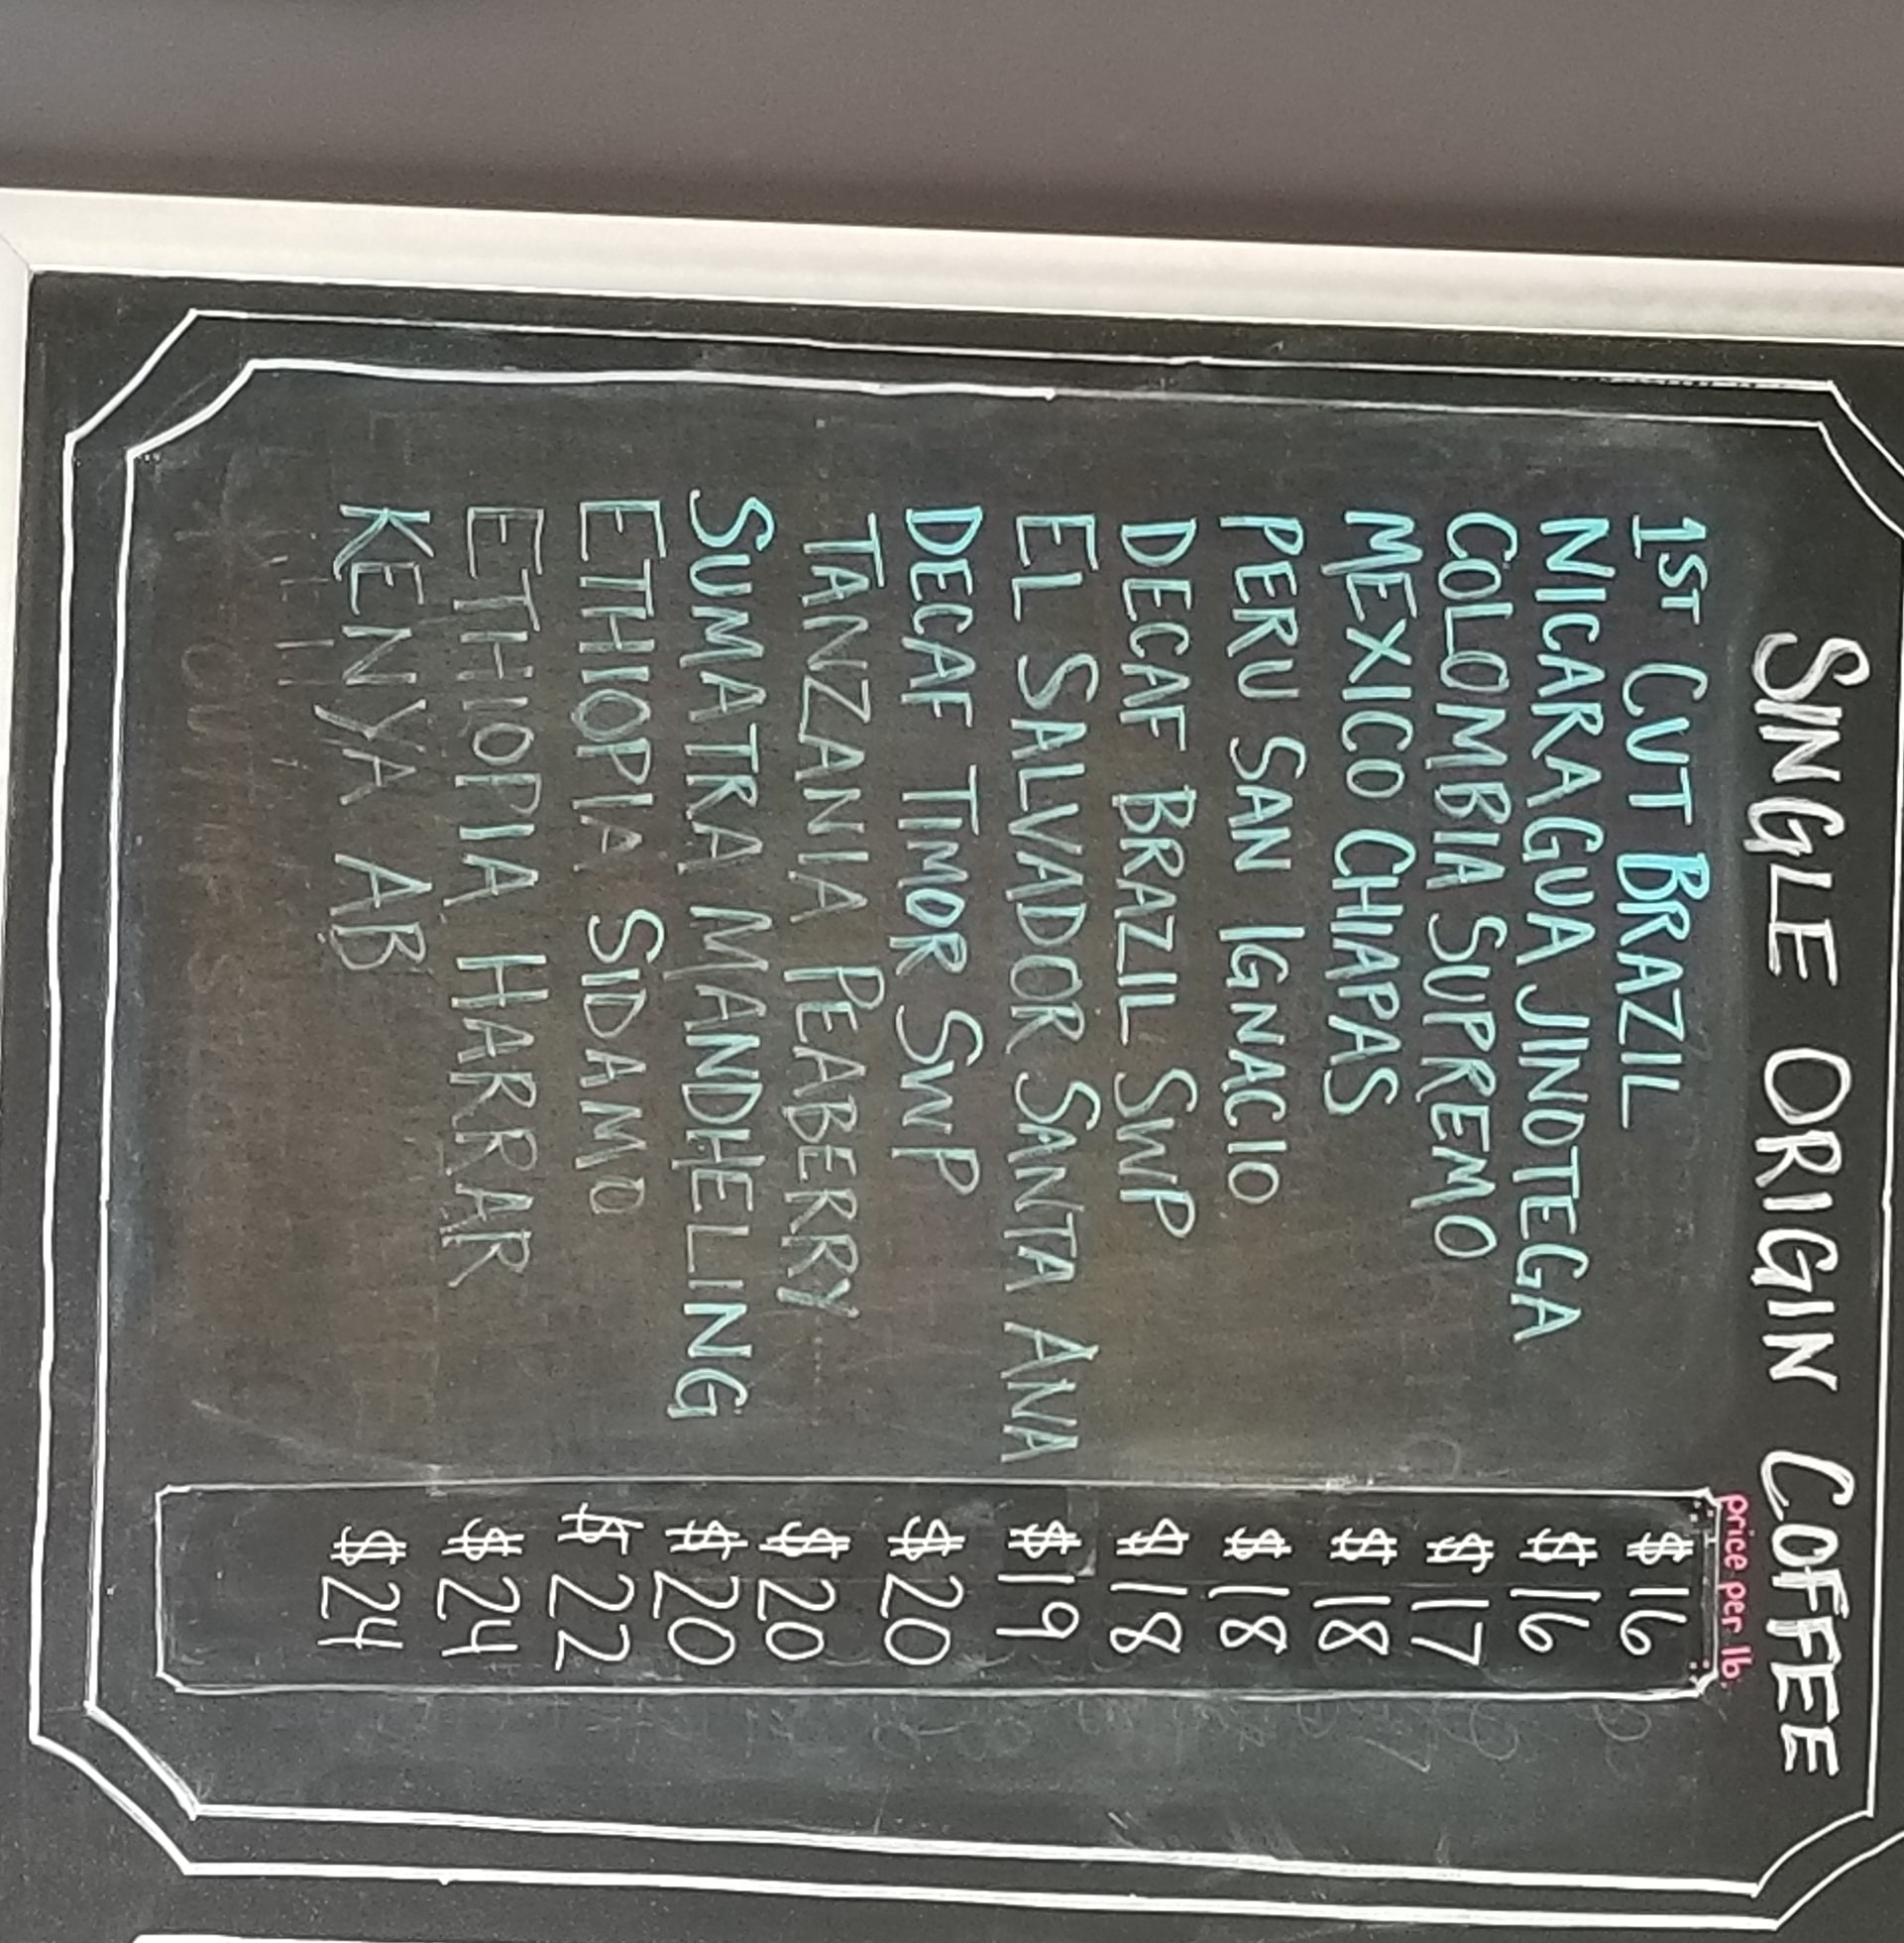 SINGLE ORIGIN COFFEE
price per lb.
1ST CUT BRAZIL $16
NICARAGUA JINOTEGA $16
COLOMBIA SUPREMO $17
MEXICO CHIAPAS $18
PERU SAN IGNACIO $18
DECAF BRAZIL SWP $18
EL SALVADOR SANTA ANA $19
DECAF TIMOR SWP $20
TANZANIA PEABERRY $20
SUMATRA MANDHELING $20
ETHIOPIA SIDAMO $22
ETHIOPIA HARRAR $24
KENYA AB $24